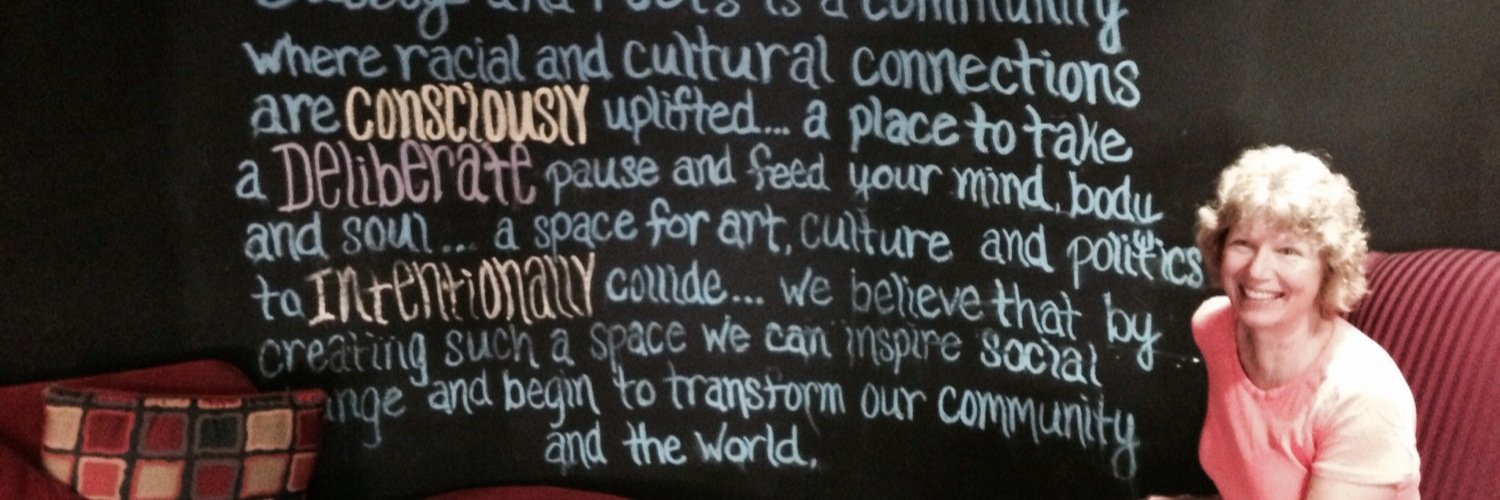 and Poets is a community
where racial and cultural connections
are CONSCIOUSLY uplifted... a place to take
a DELIBERATE pause and feed your mind, body
and soul... a space for art, culture and politics
to INTENTIONALLY collide... we believe that by
creating such a space we can inspire social
and begin to transform our community
and the world.